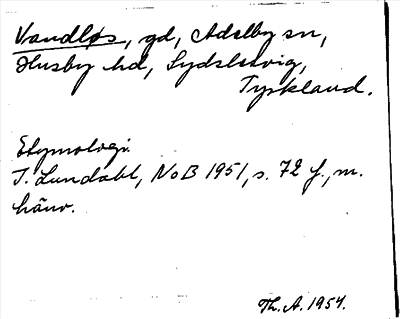 Vandløs, gd, Adelby sn,
Husby hd, Sydslesvig,
Tyskland.
Etymologi.
I. Lundahl, NoB 1951, s. 72 f., m.
hänv.
Th. A. 1954.